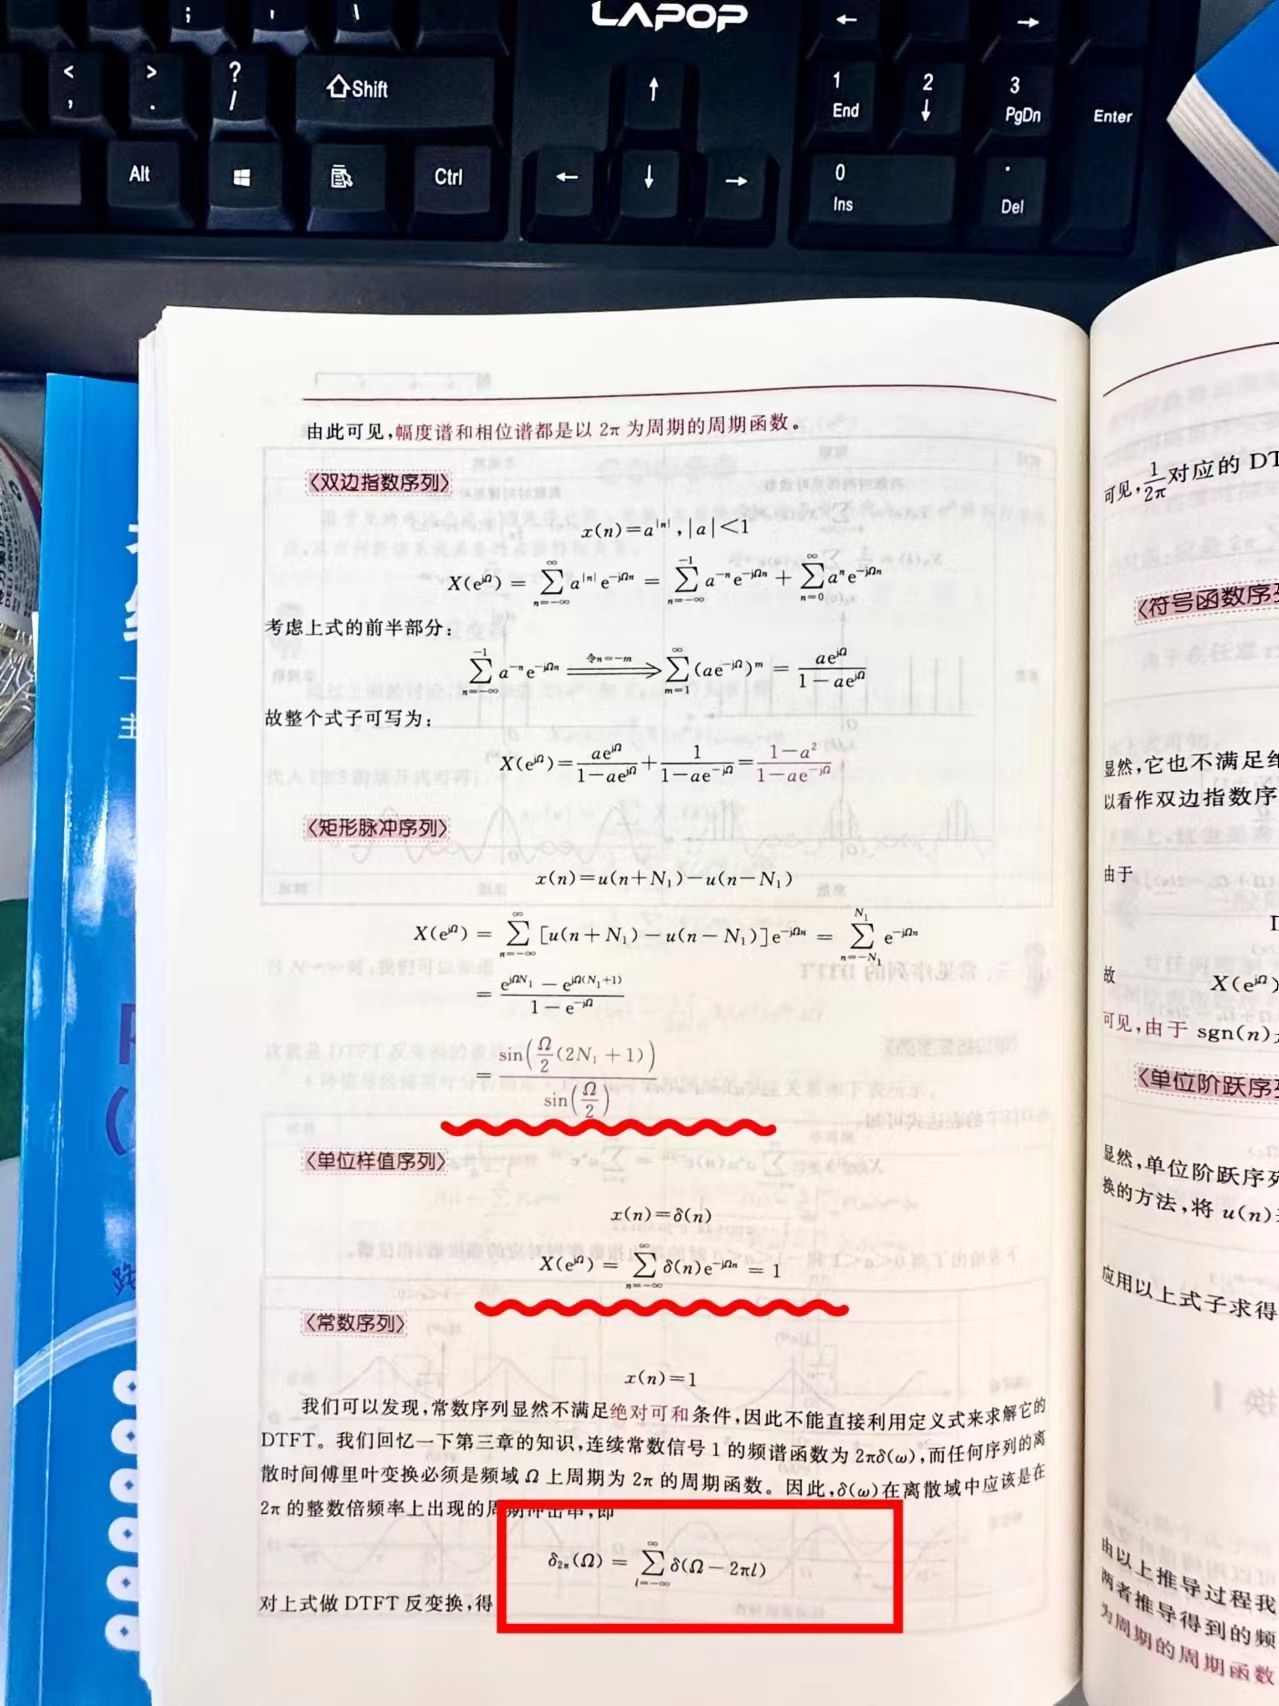 LAPOP
; ' \
← →
< ,
> .
? /
Shift
↑
1 End
2 ↓
3 PgDn
Enter
Alt
Ctrl
← ↓ →
0 Ins
. Del
由此可见,幅度谱和相位谱都是以 2π 为周期的周期函数。
〈双边指数序列〉
x(n)=a^{|n|},|a|<1
X(e^{jΩ}) = ∑_{n=-∞}^{∞} a^{|n|}e^{-jΩn} = ∑_{n=-∞}^{-1} a^{-n}e^{-jΩn} + ∑_{n=0}^{∞} a^{n}e^{-jΩn}
考虑上式的前半部分:
∑_{n=-∞}^{-1} a^{-n}e^{-jΩn} ⟹(令n=-m) ∑_{m=1}^{∞} (ae^{-jΩ})^{m} = ae^{jΩ}/(1-ae^{jΩ})
故整个式子可写为:
X(e^{jΩ})=ae^{jΩ}/(1-ae^{jΩ})+1/(1-ae^{-jΩ})=(1-a²)/(1-ae^{-jΩ})
〈矩形脉冲序列〉
x(n)=u(n+N₁)-u(n-N₁)
X(e^{jΩ}) = ∑_{n=-∞}^{∞} [u(n+N₁)-u(n-N₁)]e^{-jΩn} = ∑_{n=-N₁}^{N₁} e^{-jΩn}
= (e^{jΩN₁} - e^{jΩ(N₁+1)})/(1-e^{-jΩ})
= sin(Ω/2(2N₁+1))/sin(Ω/2)
〈单位样值序列〉
x(n)=δ(n)
X(e^{jΩ}) = ∑_{n=-∞}^{∞} δ(n)e^{-jΩn} = 1
〈常数序列〉
x(n)=1
我们可以发现,常数序列显然不满足绝对可和条件,因此不能直接利用定义式来求解它的
DTFT。我们回忆一下第三章的知识,连续常数信号 1 的频谱函数为 2πδ(ω),而任何序列的离
散时间傅里叶变换必须是频域 Ω 上周期为 2π 的周期函数。因此,δ(ω)在离散域中应该是在
2π 的整数倍频率上出现的周期冲击串,即
δ_{2π}(Ω) = ∑_{l=-∞}^{∞} δ(Ω-2πl)
对上式做 DTFT 反变换,得
可见,1/2π对应的 DT
〈符号函数序
显然,它也不满足绝
以看作双边指数序
由于
故 X(e^{jΩ})
可见,由于 sgn(n)
〈单位阶跃序
显然,单位阶跃序列
换的方法,将 u(n)
应用以上式子求得
由以上推导过程我
两者推导得到的频
为周期的周期函数